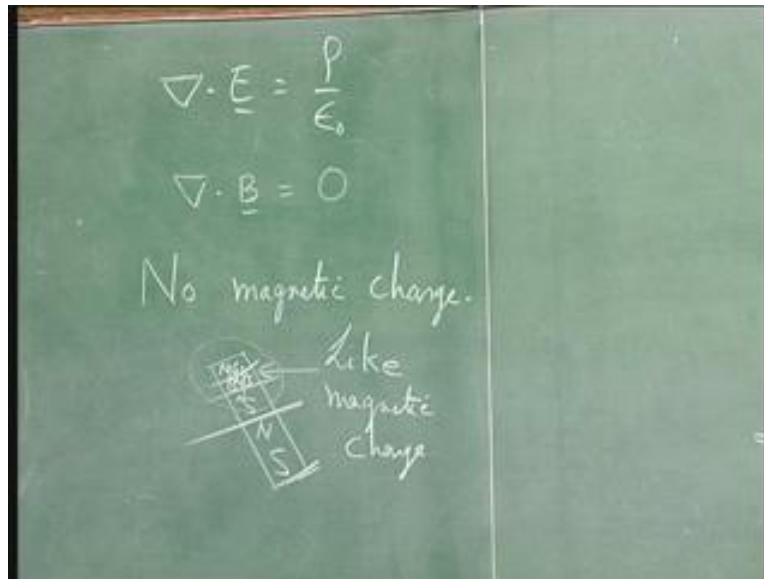 ∇· E = ρ/ϵ₀
∇· B = 0
No magnetic charge.
Like
magnetic
charge
N
S
N
S